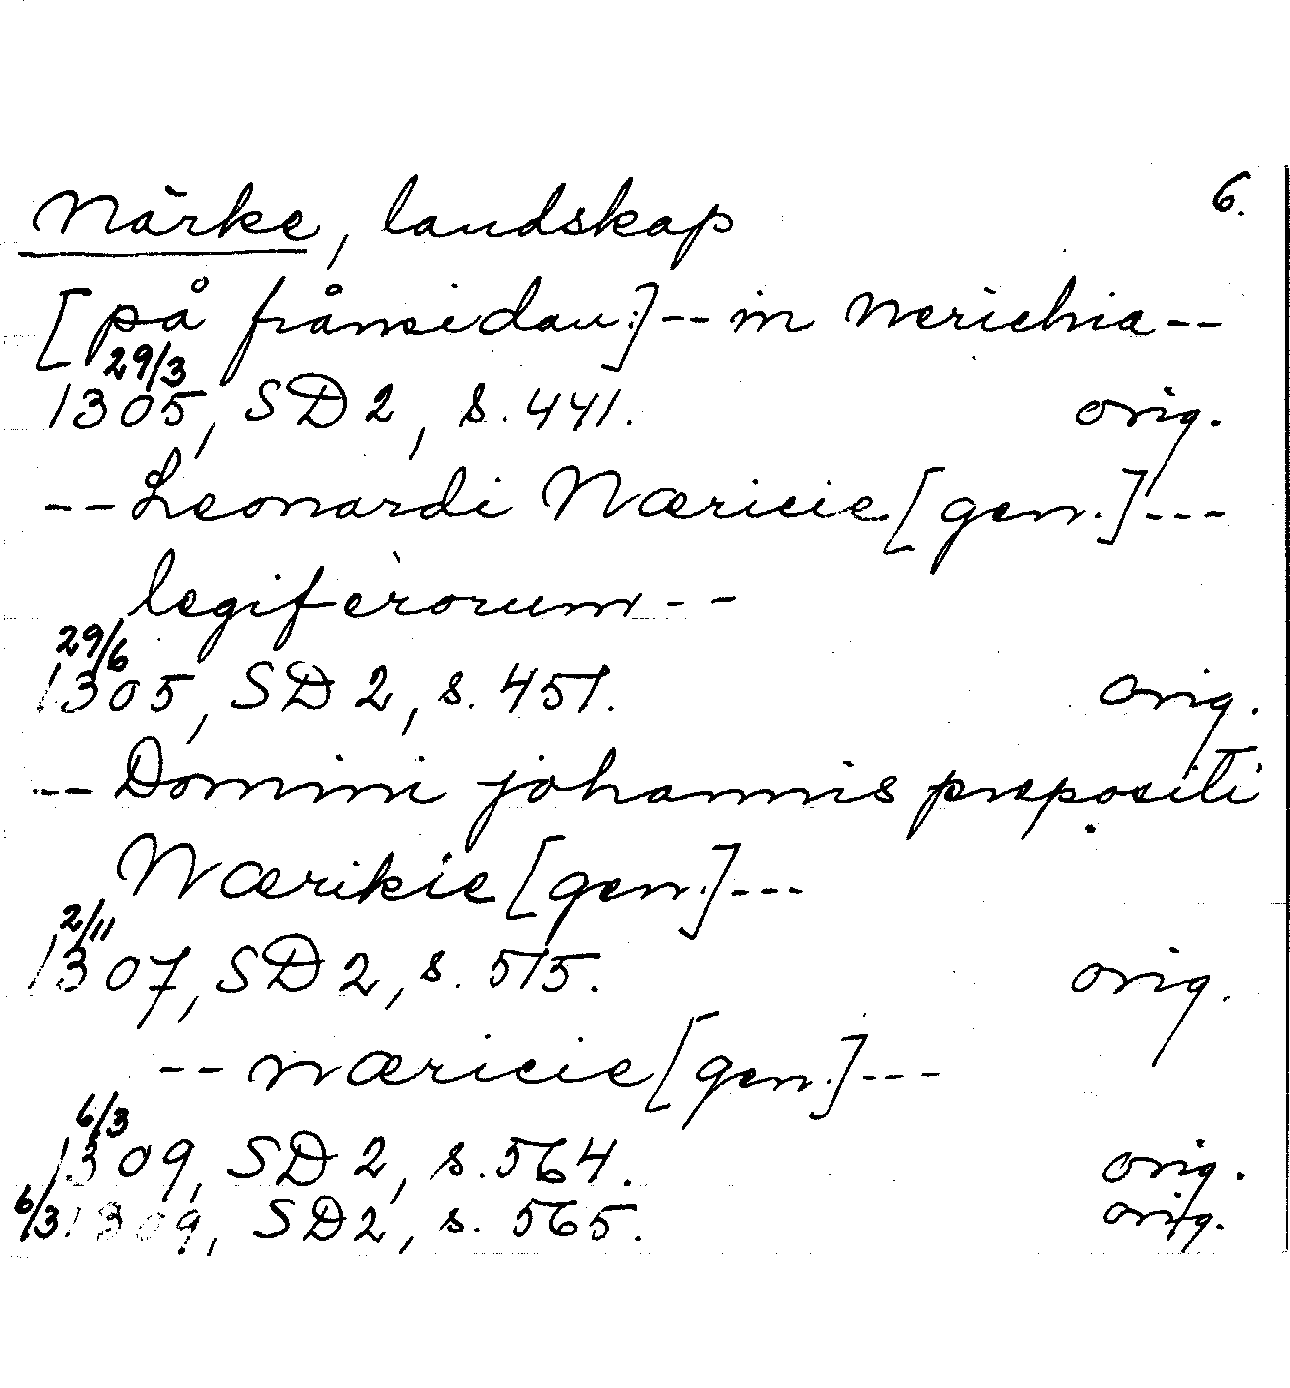 Närke, landskap 6.
[på frånsidan:] -- in nerichia --
29/3
1305, SD 2, s. 441. orig.
-- Leonardi Næricie [gen.] ---
legiferorum --
29/6
1305, SD 2, s. 451. orig.
-- Domini johannis prepositi
Nærikie [gen.] ---
2/11
1307, SD 2, s. 515. orig.
-- næricie [gen.] ---
6/3
1309, SD 2, s. 564. orig.
6/3 1309, SD 2, s. 565. orig.